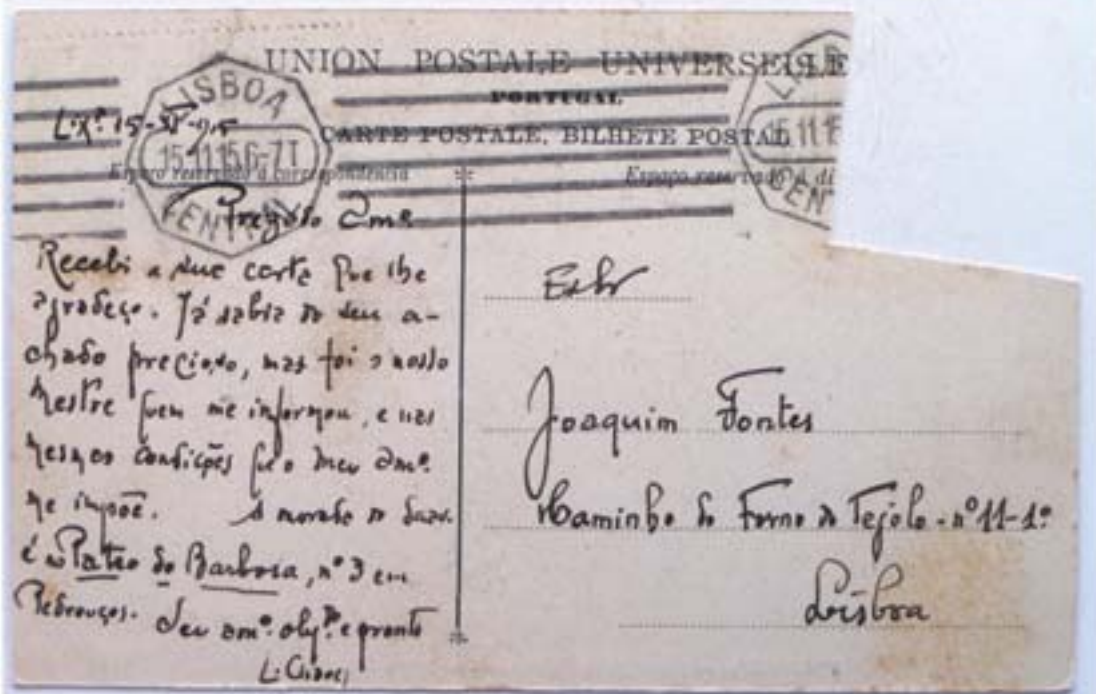 UNION POSTALE UNIVERSELLE
PORTUGAL
CARTE POSTALE, BILHETE POSTAL
LISBOA
15.11.15.6-7T
CENTRAL
Espaço reservado á correspondencia
Espaço reservado á di
15.11.15
CEN
Lxª. 15-XI-915
Prezado Amº
Recebi a sua carta que lhe
agradeço. Já sabia do seu a-
chado precioso, mas foi o nosso
Mestre quem me informou, e nas
mesmas condições que o meu amº.
me impõe. A morada do
é Pateo do Barbosa, nº 3 em
Pedrouços. Seu amº. obgº. e
L. Chaves
Joaquim Fontes
Caminho do Forno do Tejolo - nº 11-1º
Lisboa